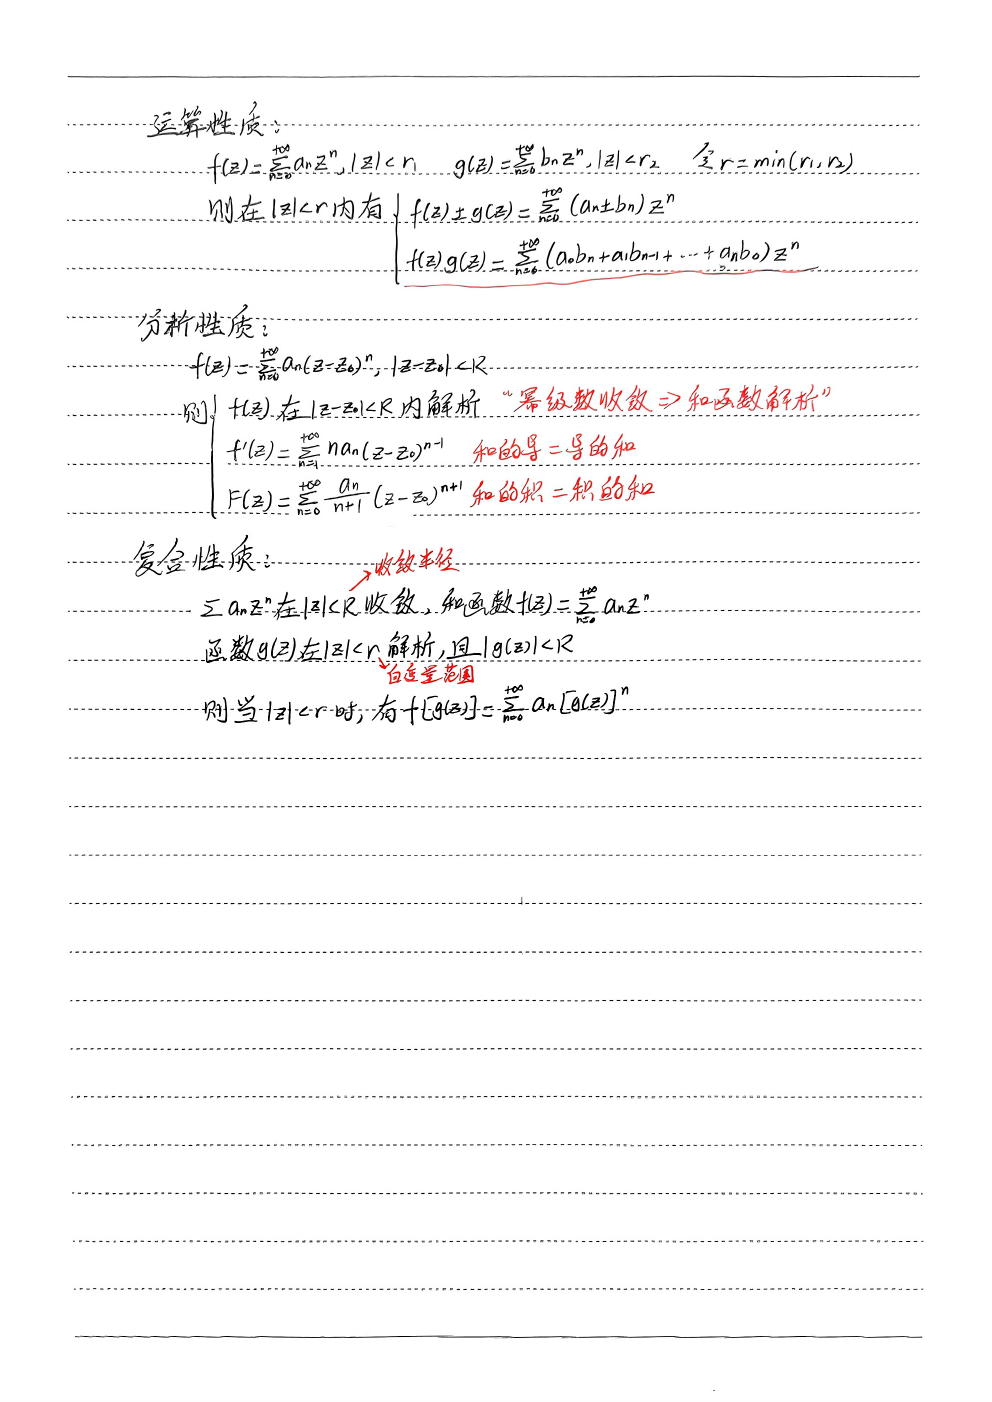 运算性质:
f(z)=∑_{n=0}^{+∞} aₙzⁿ, |z|<r₁  g(z)=∑_{n=0}^{+∞} bₙzⁿ, |z|<r₂  令 r=min(r₁,r₂)
则在|z|<r内有 { f(z)±g(z)=∑_{n=0}^{+∞} (aₙ±bₙ)zⁿ
f(z)g(z)=∑_{n=0}^{+∞} (a₀bₙ+a₁bₙ₋₁+…+aₙb₀)zⁿ
分析性质:
f(z)=∑_{n=0}^{+∞} aₙ(z-z₀)ⁿ, |z-z₀|<R
则 { f(z)在|z-z₀|<R内解析 “幂级数收敛⇒和函数解析”
f'(z)=∑_{n=1}^{+∞} naₙ(z-z₀)ⁿ⁻¹ 和的导=导的和
F(z)=∑_{n=0}^{+∞} aₙ/(n+1) (z-z₀)ⁿ⁺¹ 和的积=积的和
复合性质:
→收敛半径
∑aₙzⁿ在|z|<R收敛, 和函数f(z)=∑_{n=0}^{+∞} aₙzⁿ
函数g(z)在|z|<r解析, 且|g(z)|<R
→自变量范围
则当|z|<r时, 有f[g(z)]=∑_{n=0}^{+∞} aₙ[g(z)]ⁿ